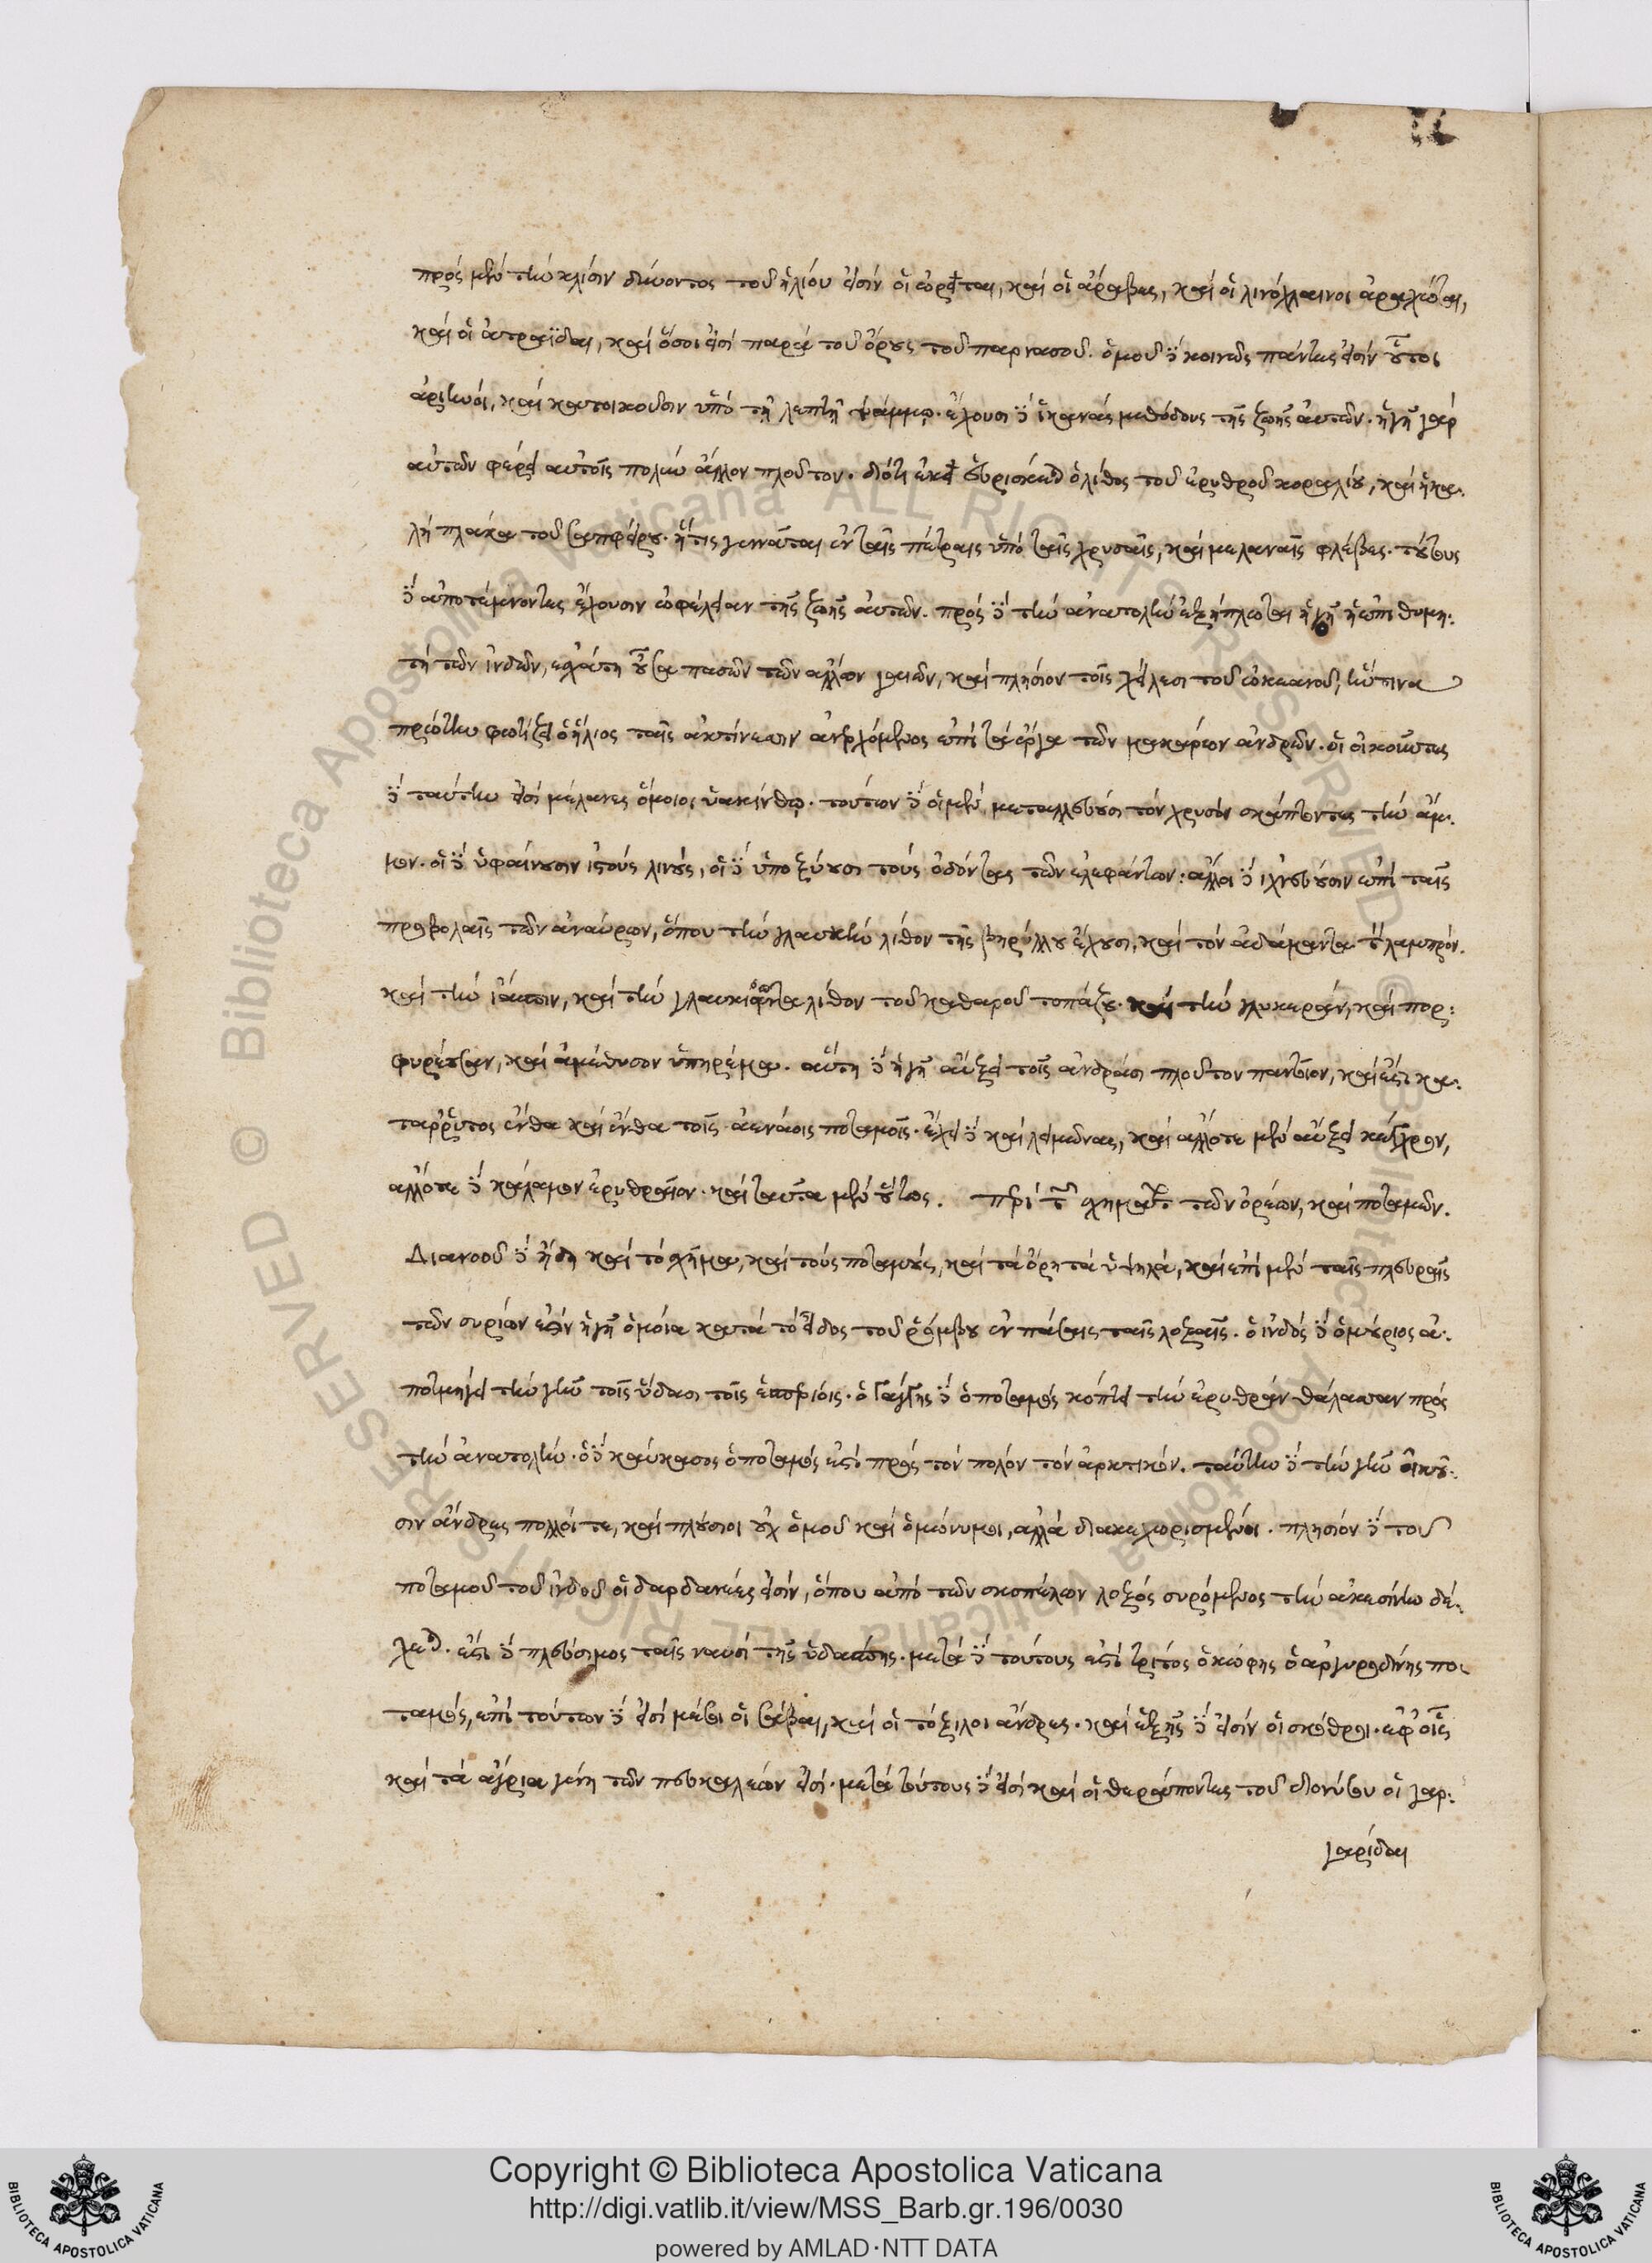 πρὸς μὲν τὴν κλίσιν δύνοντος τοῦ ἡλίου εἰσὶν οἱ ὠρεῖται, καὶ οἱ ἀράβιες, καὶ οἱ λινόχλαινοι ἀραχῶται,
καὶ οἱ ἀτραΐδαι, καὶ ὅσοι εἰσὶ παρὰ τοῦ ὄρους τοῦ παρνασοῦ. ὁμοῦ δὲ κοινῶς πάντες εἰσὶν οὗτοι
ἀριηνοὶ, καὶ κατοικοῦσιν ὑπὸ τῇ λεπτῇ ψάμμῳ. ἔχουσι δὲ ἱκανὰς μεθόδους τῆς ζωῆς αὐτῶν. ἡ γῆ γὰρ
αὐτῶν φέρει αὐτοῖς πολὺν ἄλλον πλοῦτον. διότι ἐκεῖ εὑρίσκεται ὁ λίθος τοῦ ἐρυθροῦ κοραλίου, καὶ ἡ κα-
λὴ πλάκα τοῦ σαπφείρου. ἥτις γεννᾶται ἐν ταῖς πέτραις ὑπὸ ταῖς χρυσαῖς, καὶ μελαναῖς φλέβες. τούτους
δὲ ἀποτέμνοντες ἔχουσιν ὠφέλειαν τῆς ζωῆς αὐτῶν. πρὸς δὲ τὴν ἀνατολὴν ἐξήπλωται ἡ γῆ ἡ ἐπιθυμη-
τὴ τῶν ἰνδῶν, ἐσχάτη οὖσα πασῶν τῶν ἄλλων γαιῶν, καὶ πλησίον τοῖς χείλεσι τοῦ ὠκεανοῦ, ἥντινα
πρώτην φωτίζει ὁ ἥλιος ταῖς ἀκτίνεσιν ἀνερχόμενος ἐπὶ τὰ ἔργα τῶν μακάρων ἀνδρῶν. οἱ οἰκοῦντες
δὲ ταύτην εἰσὶ μέλανες ὅμοιοι ὑακίνθῳ. τούτων δὲ οἱ μὲν μεταλλεύουσι τὸν χρυσὸν σκάπτοντες τὴν ἄμ-
μον. οἱ δὲ ὑφαίνουσιν ἱστοὺς λινοὺς, οἱ δὲ ὑποξύουσι τοὺς ὀδόντας τῶν ἐλεφάντων: ἄλλοι δὲ ἰχνεύουσιν ἐπὶ ταῖς
προβολαῖς τῶν ἀναύρων, ὅπου τὴν γλαυκὴν λίθον τῆς βηρύλλου ἔχουσι, καὶ τὸν ἀδάμαντα τὸν λαμπρόν.
καὶ τὴν ἴασπιν, καὶ τὴν γλαυκιόωντα λίθον τοῦ καθαροῦ τοπάζου. καὶ τὴν γλυκερὰν, καὶ πορ-
φυρέεσσαν, καὶ ἀμέθυσον ὑπηρέμα. αὕτη δὲ ἡ γῆ αὔξει τοῖς ἀνδράσι πλοῦτον παντοῖον, καὶ ἔστι κα-
τάρρυτος ἔνθα καὶ ἔνθα τοῖς ἀενάοις ποταμοῖς. ἔχει δὲ καὶ λειμῶνας, καὶ ἄλλοτε μὲν αὔξει κέγχρον,
ἄλλοτε δὲ κάλαμον ἐρυθραῖον. καὶ ταῦτα μὲν οὕτως. περὶ τοῦ σχήματος τῶν ὀρέων, καὶ ποταμῶν.
Διανοοῦ δὲ ἤδη καὶ τὸ σχῆμα, καὶ τοὺς ποταμοὺς, καὶ τὰ ὄρη τὰ ὑψηλὰ, καὶ ἐπὶ μὲν ταῖς πλευραῖς
τῶν συρίων ἐστὶν ἡ γῆ ὁμοία κατὰ τὸ εἶδος τοῦ ῥόμβου ἐν πάσαις ταῖς λοξαῖς. ὁ ἰνδὸς δὲ ὁ μούριος ἀ-
ποτμήγει τὴν γῆν τοῖς ὕδασι τοῖς ἑσπερίοις. ὁ Γάγγης δὲ ὁ ποταμὸς κόπτει τὴν ἐρυθρὰν θάλασσαν πρὸς
τὴν ἀνατολήν. ὁ δὲ καύκασος ὁ ποταμὸς ἐστὶ πρὸς τὸν πόλον τὸν ἀρκτικόν. ταύτην δὲ τὴν γῆν οἰκοῦ-
σιν ἄνδρες πολλοί τε, καὶ πλούσιοι οὐχ ὁμοῦ καὶ ὁμώνυμοι, ἀλλὰ διακεχωρισμένοι. πλησίον δὲ τοῦ
ποταμοῦ τοῦ ἰνδοῦ οἱ δαρδανέες εἰσὶν, ὅπου ἀπὸ τῶν σκοπέλων λοξὸς συρόμενος τὴν ἀκεσίνην δέ-
χεται. ἔστι δὲ πλεύσιμος ταῖς ναυσὶ τῆς ὑδάσπης. μετὰ δὲ τούτους ἐστὶ τρίτος ὁ κώφης ὁ ἀργυροδίνης πο-
ταμὸς, ἐπὶ τούτων δὲ εἰσὶ μέσοι οἱ σάβαι, καὶ οἱ τόξιλοι ἄνδρες. καὶ ἑξῆς δὲ εἰσὶν οἱ σκόδροι. ἐφ' οἷς
καὶ τὰ ἄγρια γένη τῶν πευκαλέων εἰσί. μετὰ τούτους δὲ εἰσὶ καὶ οἱ θεράποντες τοῦ διονύσου οἱ γαρ-
γαρίδαι
Copyright © Biblioteca Apostolica Vaticana
http://digi.vatlib.it/view/MSS_Barb.gr.196/0030
powered by AMLAD·NTT DATA